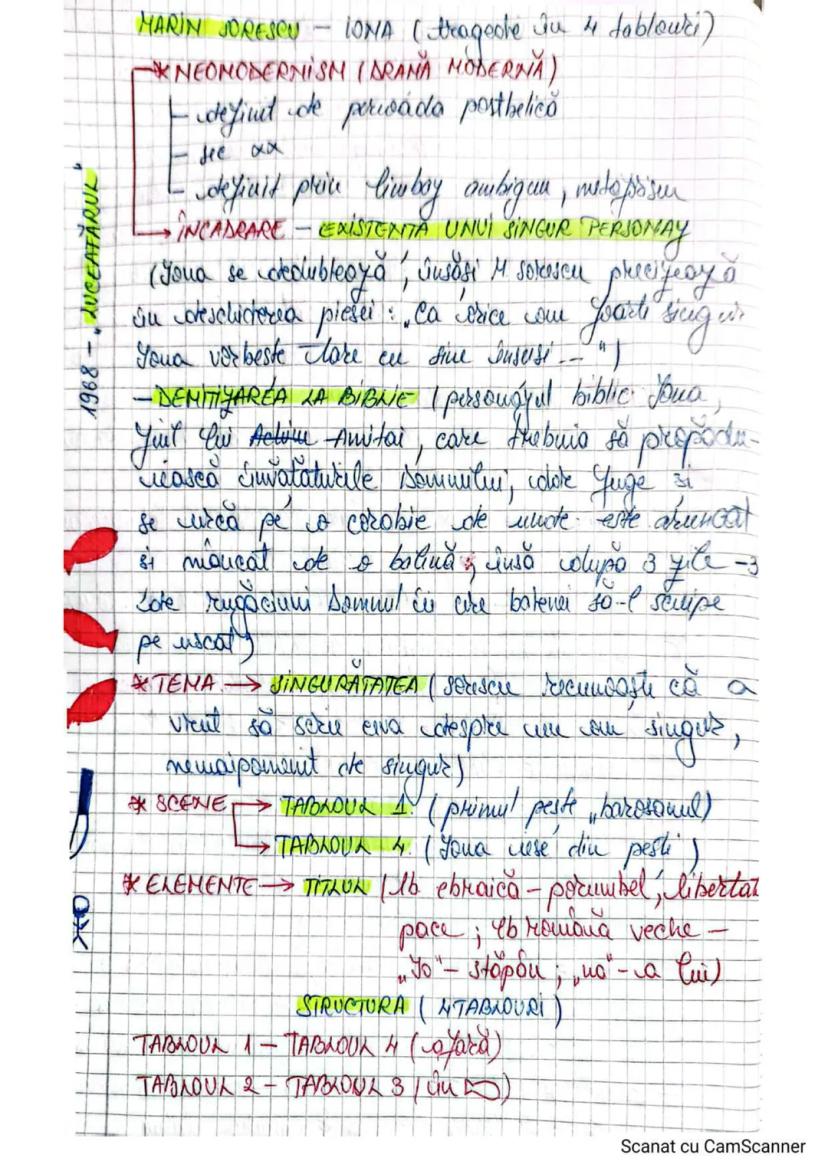 MARIN SORESCU – IONA (tragedie în 4 tablouri)
* NEOMODERNISM (DRAMĂ MODERNĂ)
– definit de perioada postbelică
– sec XX
– definit prin limbaj ambiguu, metaforism
1968 – „LUCEAFĂRUL"
→ ÎNCADRARE – EXISTENTA UNUI SINGUR PERSONAJ
(Iona se dedublează, însăși M. Sorescu precizează
în deschiderea piesei : „Ca orice om foarte singur
Iona vorbește tare cu sine însuși..")
– DEMITIZAREA LA BIBLIE (personajul biblic Iona,
fiul lui Amitai, care trebuia să propovădu-
iească învățăturile Domnului, dar fuge și
se urcă pe o corabie de unde este aruncat
și mâncat de o balenă; însă după 3 zile –3
de rugăciuni Domnul îi cere balenei să-l scuipe
pe uscat)
* TEMA → SINGURĂTATEA (Sorescu recunoaște că a
vrut să scrie ceva despre un om singur,
nemaipomenit de singur)
* SCENE → TABLOUL 1. (primul pește „barosanul)
→ TABLOUL 4. (Iona iese din pești)
* ELEMENTE → TITLUL (lb ebraică – porumbel, libertat
pace ; lb română veche –
„Io" – stăpân ; „na" – a lui)
STRUCTURA ( 4 TABLOURI )
TABLOUL 1 – TABLOUL 4 (afară)
TABLOUL 2 – TABLOUL 3 (în )
Scanat cu CamScanner